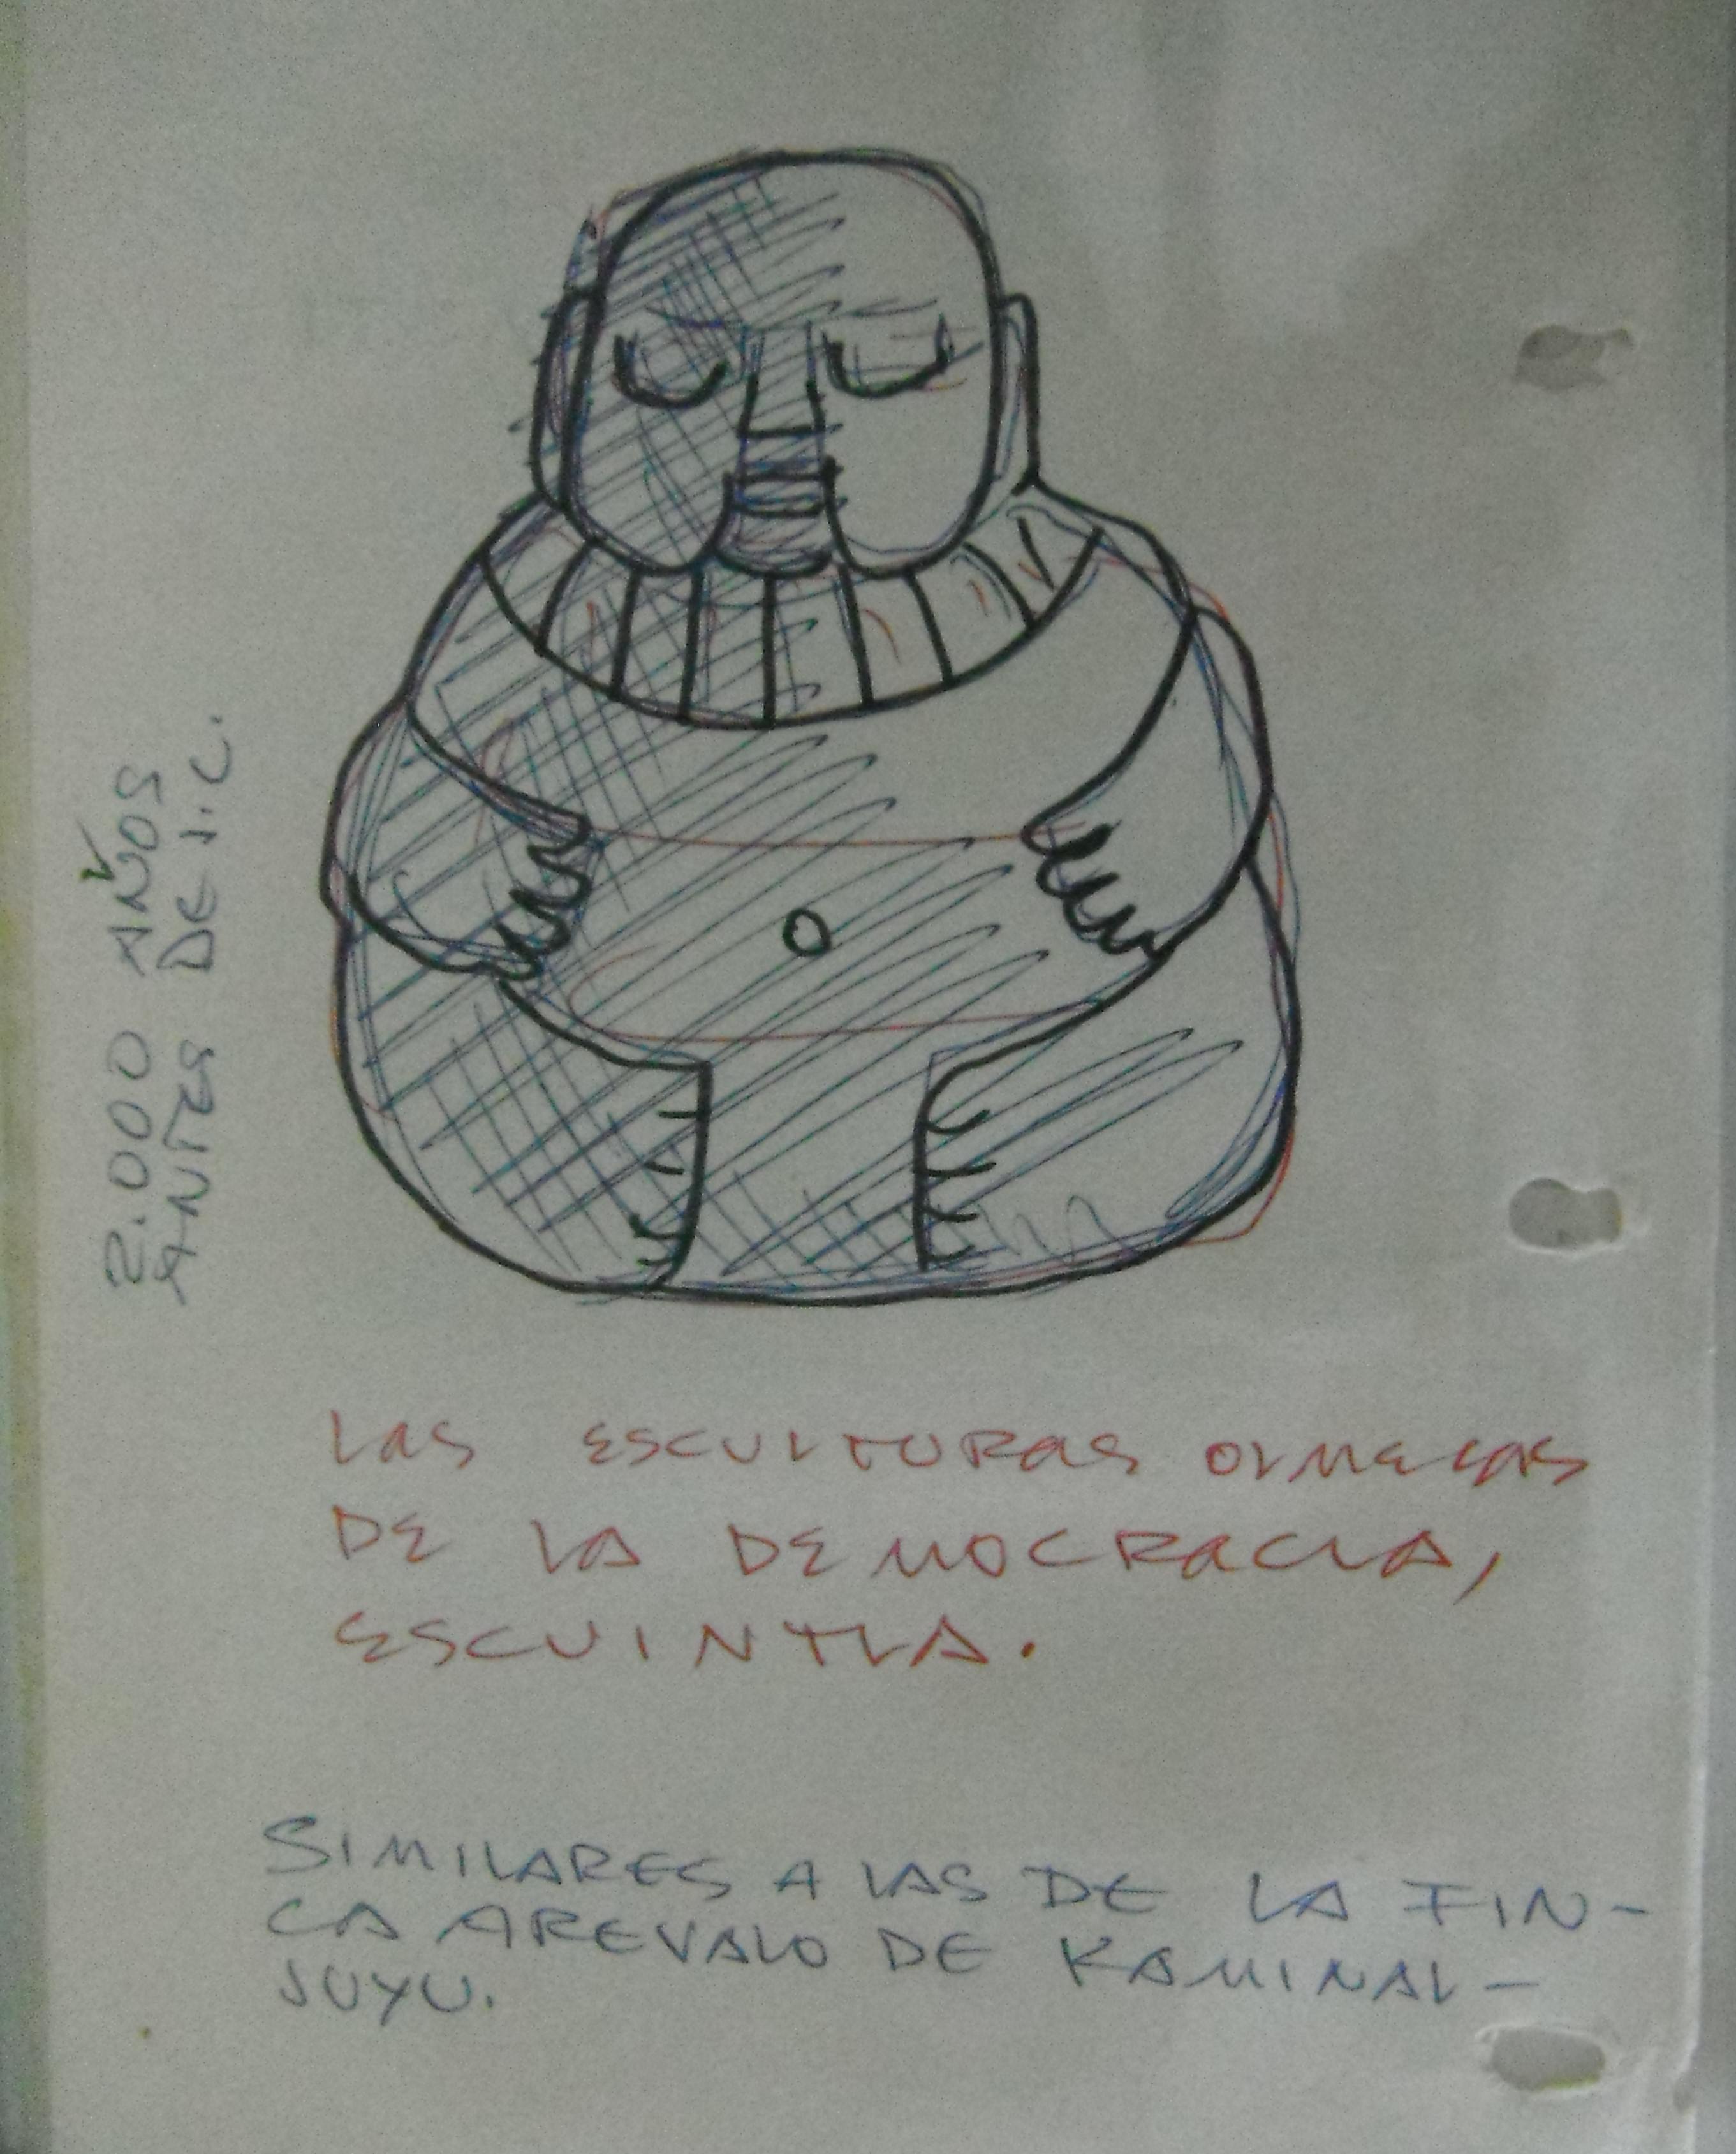 2.000 AÑOS
ANTES DE J.C.
LAS ESCULTURAS OLMECAS
DE LA DEMOCRACIA,
ESCUINTLA.
SIMILARES A LAS DE LA FIN-
CA AREVALO DE KAMINAL-
JUYU.